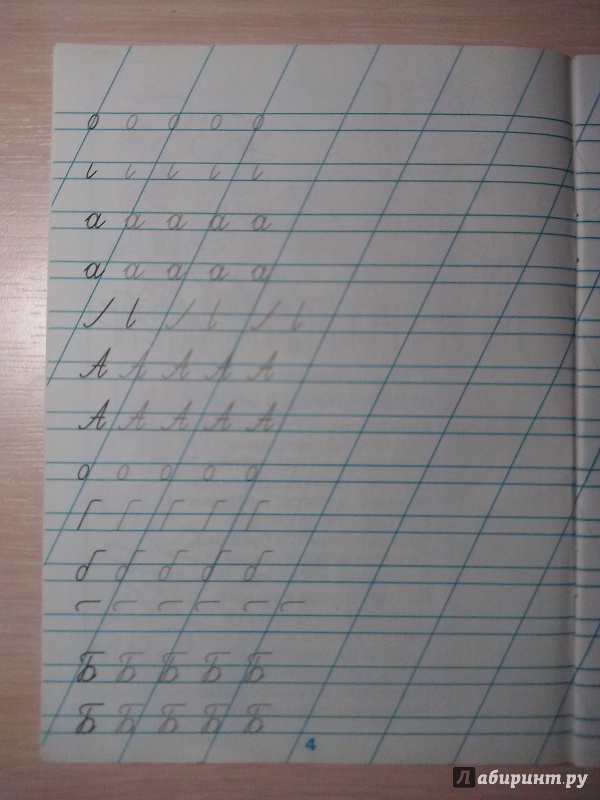 о о о о о
а а а а а
а а а а а
А А А А А
А А А А А
о о о о о
Г Г Г Г Г
б б б б б
Б Б Б Б Б
Б Б Б Б Б
4
Лабиринт.ру